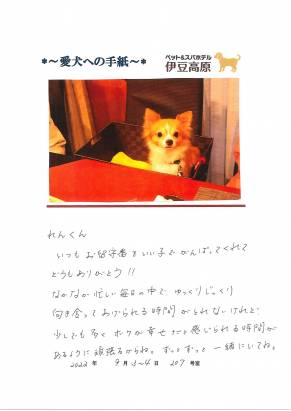 *～愛犬への手紙～*
ペット&スパホテル
伊豆高原
れんくん
いつもお留守番をいい子でがんばってくれて
どうもありがとう!!
なかなか忙しい毎日の中で、ゆっくりじっくり
向き合ってあげられる時間がとれないけれど
少しでも多くボクが幸せだと感じられる時間が
あるように頑張るからね。ずっとずっと一緒にいてね。
2022 年 9月 3～4日 207 号室